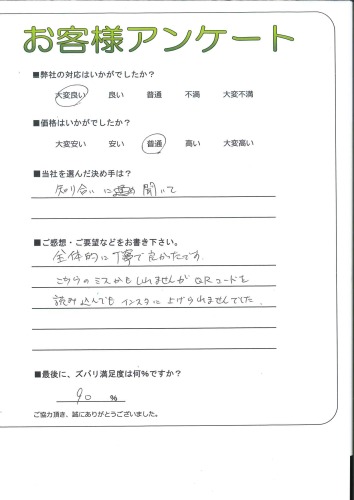 お客様アンケート
■弊社の対応はいかがでしたか？
大変良い 良い 普通 不満 大変不満
■価格はいかがでしたか？
大変安い 安い 普通 高い 大変高い
■当社を選んだ決め手は？
知り合いに 聞いて
■ご感想・ご要望などをお書き下さい。
全体的に丁寧で良かたです.
こちらのミスかもしれませんがQRコードを
読み込んでもインスタに上げられませんでした.
■最後に、ズバリ満足度は何%ですか？
90 %
ご協力頂き、誠にありがとうございました。